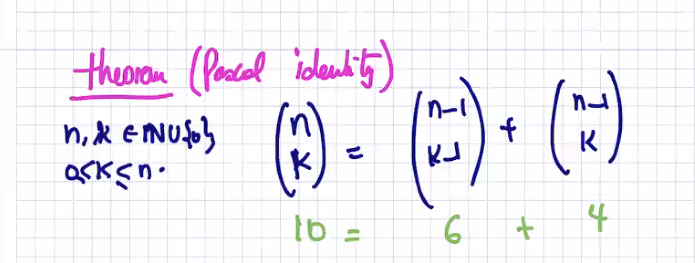 theorem (Pascal identity)
n, k ∈ ℕ∪{0}
0<k≤n.
(n k) = (n-1 k-1) + (n-1 k)
10 = 6 + 4